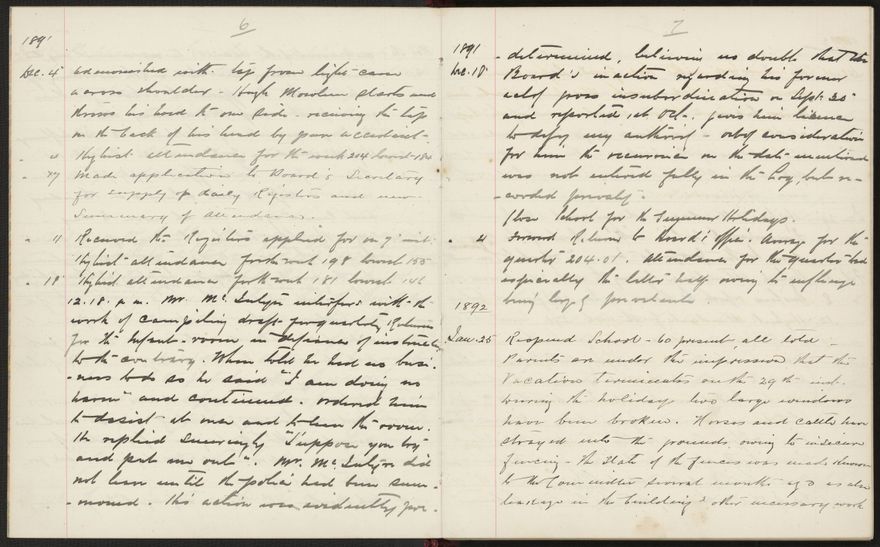 6
1891
Dec. 4 admonished with tap from light cane
across shoulder - Hugh starts and
throws his head to one side receiving the tap
on the back of his head by pure accident.
" " Highest attendance for the week 204 lowest 180
" " 7 Made application to Board's Secretary
for supply of daily Registers and new
Summary of Attendances.
" 11 Received the Registers applied for on 7th inst.
Highest attendance for the week 198 lowest 155
" 18 Highest attendance for the week 181 lowest 146
12.18. p.m. Mr. Mc. interferes with the
work of compiling draft for quarterly Returns
for the Infant-room in defiance of instructions
to the contrary. When told he had no busi-
-ness to do so he said "I am doing no
harm" and continued. Ordered him
to desist at once and to leave the room.
He replied sneeringly "Suppose you try
and put me out". Mr. Mc. did
not leave until the police had been sum-
-moned. His action was evidently pre-
7
1891
Dec. 18 - determined, believing no doubt that the
Board's inaction regarding his former
act of gross insubordination on Sept. 30
and reported 1st Oct., gives him licence
to defy my authority - out of consideration
for him the occurrence on the date mentioned
was not entered fully in the Log, but re-
-corded
Close School for the Summer Holidays.
" " Forward Returns to Board's Office. Average for the
quarter 204.01. Attendance for the quarter bad
especially the latter half owing to influenza
being largely prevalent.
1892
Jan. 25 Reopened School - 60 present, all told -
Parents are under the impression that the
Vacation terminates on the 29th inst.
During the holidays two large windows
have been broken. Horses and cattle have
strayed into the grounds owing to insecure
fencing - the state of the fences was made known
to the Committee several months ago as also
leakage in the building & other necessary work